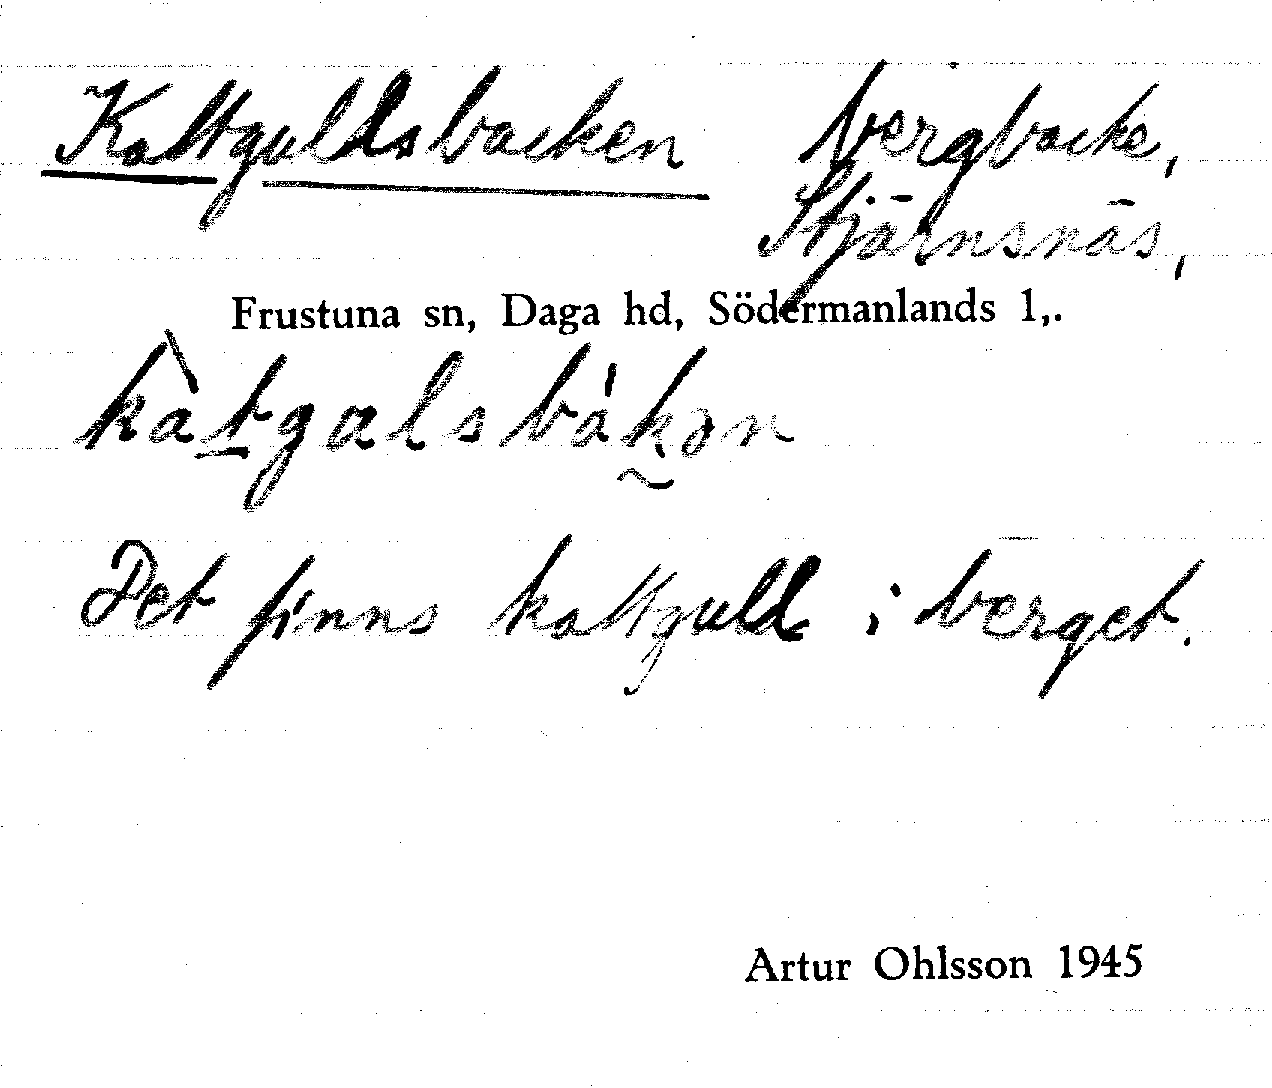 Kattguldsbacken bergbacke,
Stjärnsnäs,
Frustuna sn, Daga hd, Södermanlands l,.
kàtgalsbákən
Det finns kattguld i berget.
Artur Ohlsson 1945